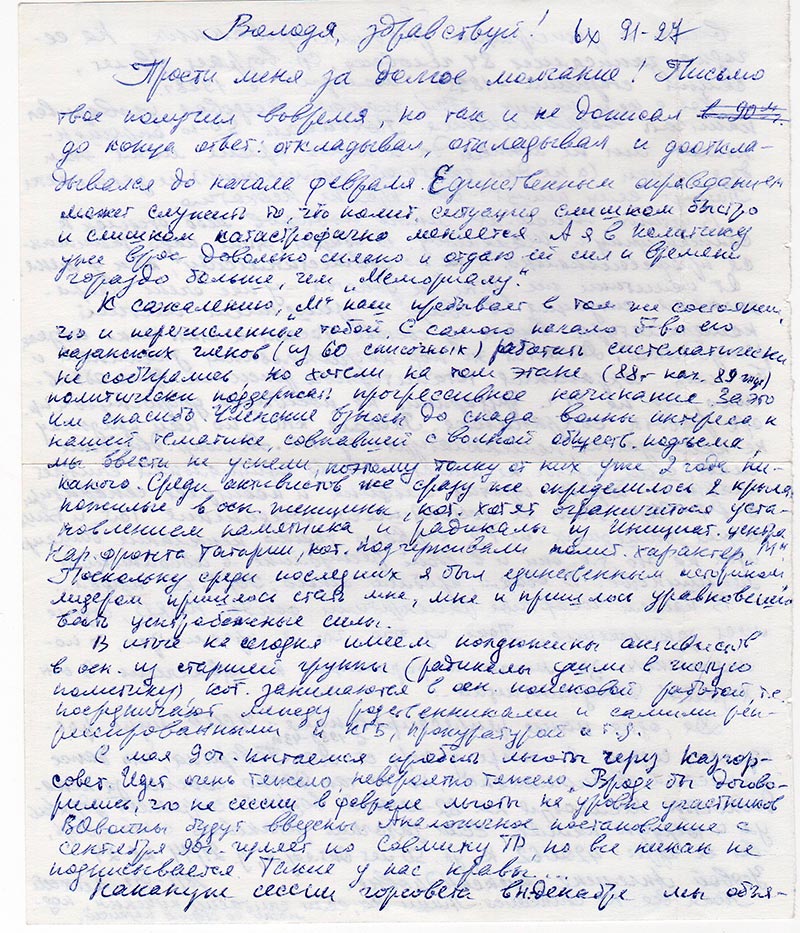 Володя, здравствуй! вх 91-27
Прости меня за долгое молчание! Письмо
твое получил вовремя, но так и не дописал в 90-м г.
до конца ответ: откладывал, откладывал и дооткла-
дывался до начала февраля. Единственным оправданием
может служить то, что полит. ситуация слишком быстро
и слишком катастрофично меняется. А я в политику
уже врос довольно сильно и отдаю ей сил и времени
гораздо больше, чем „Мемориалу".
К сожалению, „М" наш пребывает в том же состоянии,
что и перечисленные тобой. С самого начала б-во его
казанских членов (из 60 списочных) работать систематически
не собирались, но хотели на том этапе (88г - нач. 89 года)
политически поддержать прогрессивное начинание. За это
им спасибо. Членские взносы до спада волны интереса к
нашей тематике, совпавшей с волной обществ. подъема,
мы ввести не успели, поэтому толку от них уже 2 года ни-
какого. Среди активистов же сразу же определилось 2 крыла:
пожилые в осн. женщины, кот. хотят ограничиться уста-
новлением памятника и радикалы из Инициат. центра
Нар. фронта Татарии, кот. подчеркивали полит. характер „М".
Поскольку среди последних я был единственным историком
лидером пришлось стать мне, мне и пришлось уравновеши-
вать центробежные силы.
В итоге на сегодня имеем полдюжины активистов
в осн. из старшей группы (радикалы ушли в чистую
политику), кот. занимаются в осн. поисковой работой, т.е.
посредничают между родственниками и самими реп-
рессированными и КГБ, прокуратурой и т.д.
С мая 90г. пытаемся пробить льготы через Казгор-
совет. Идет очень тяжело, невероятно тяжело. Вроде бы догово-
рились, что на сессии в феврале льготы на уровне участников
ВОвойны будут введены. Аналогичное постановление с
сентября 90г. гуляет по Совмину ТР но все никак не
подписывается. Такие у нас нравы...
Накануне сессии горсовета в декабре мы объя-